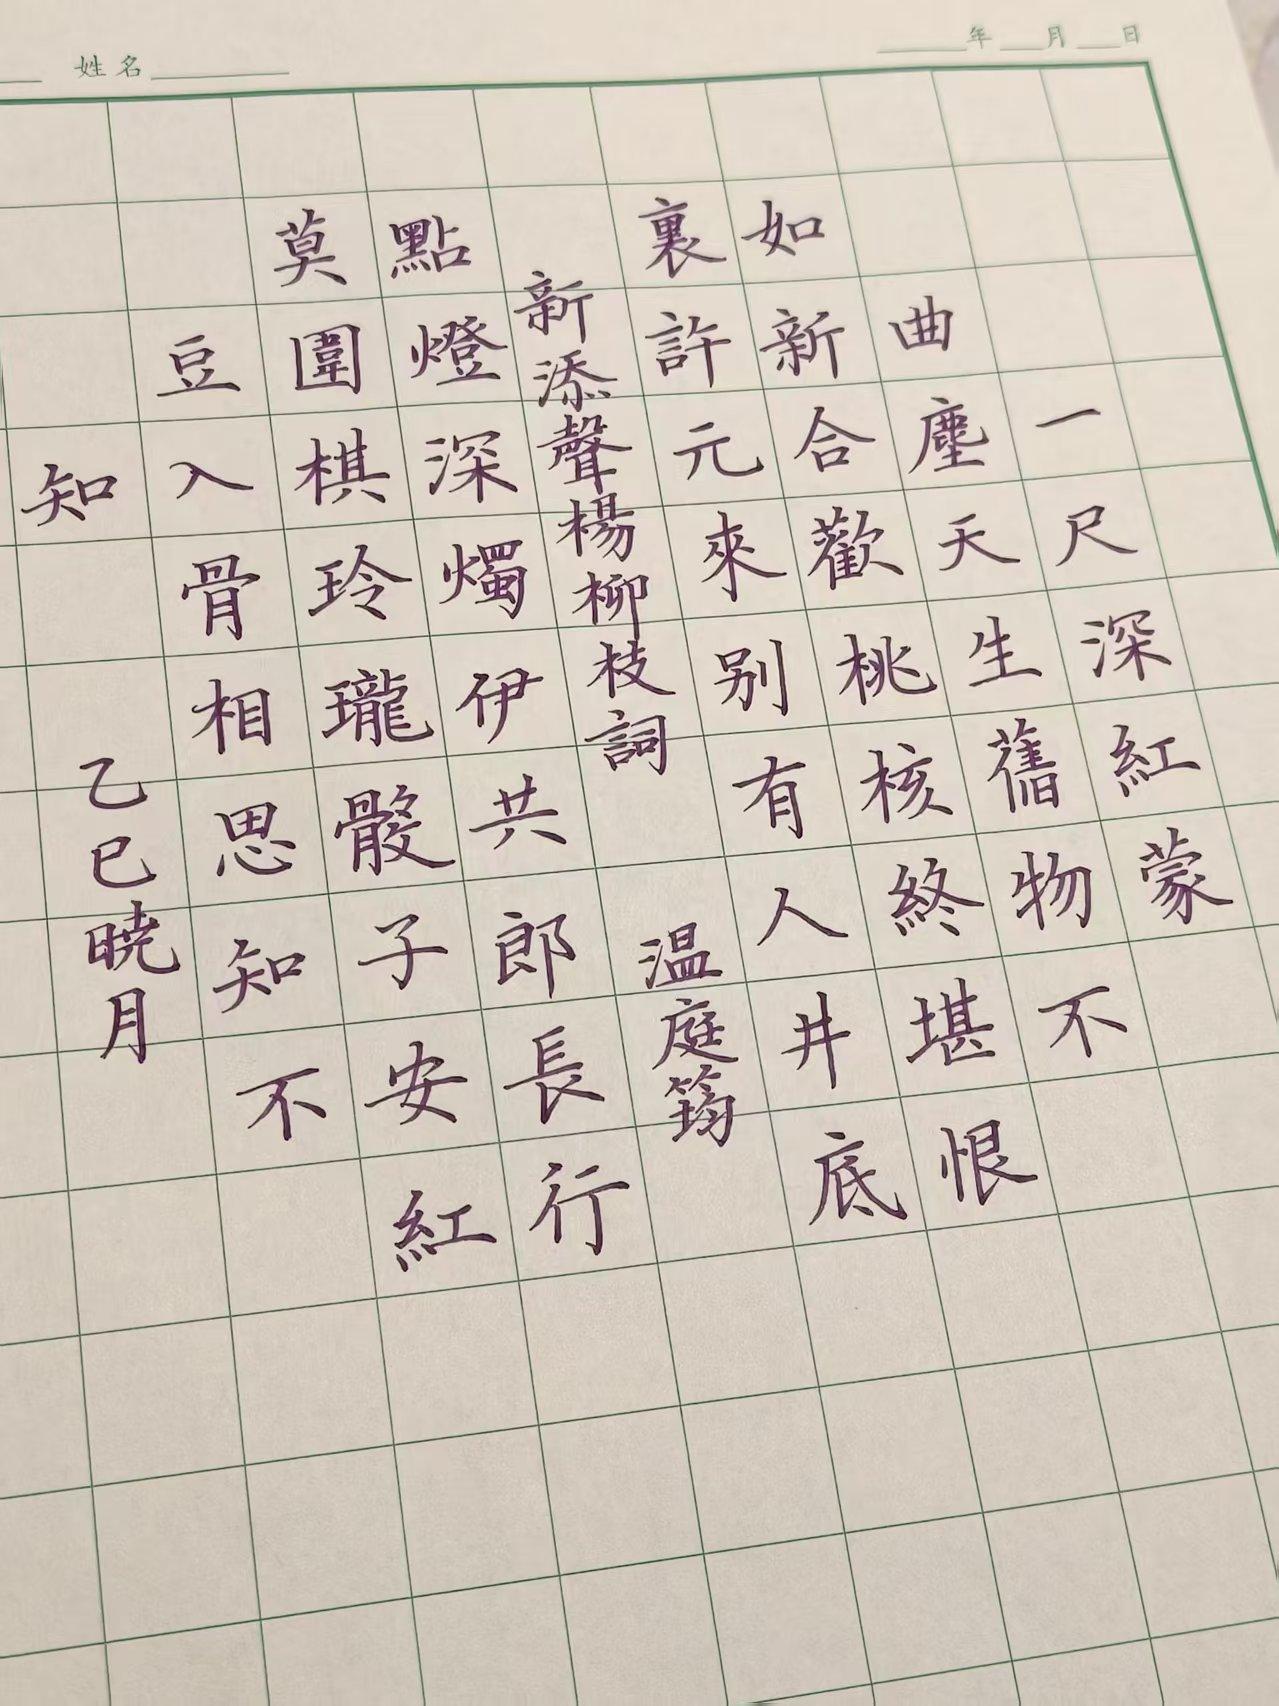 姓名
年 月 日
一尺深紅蒙
曲塵天生舊物不
如新合歡桃核終堪恨
裏許元來别有人井底
新添聲楊柳枝詞 温庭筠
點燈深燭伊共郎長行
莫圍棋玲瓏骰子安紅
豆入骨相思知不
知 乙巳曉月